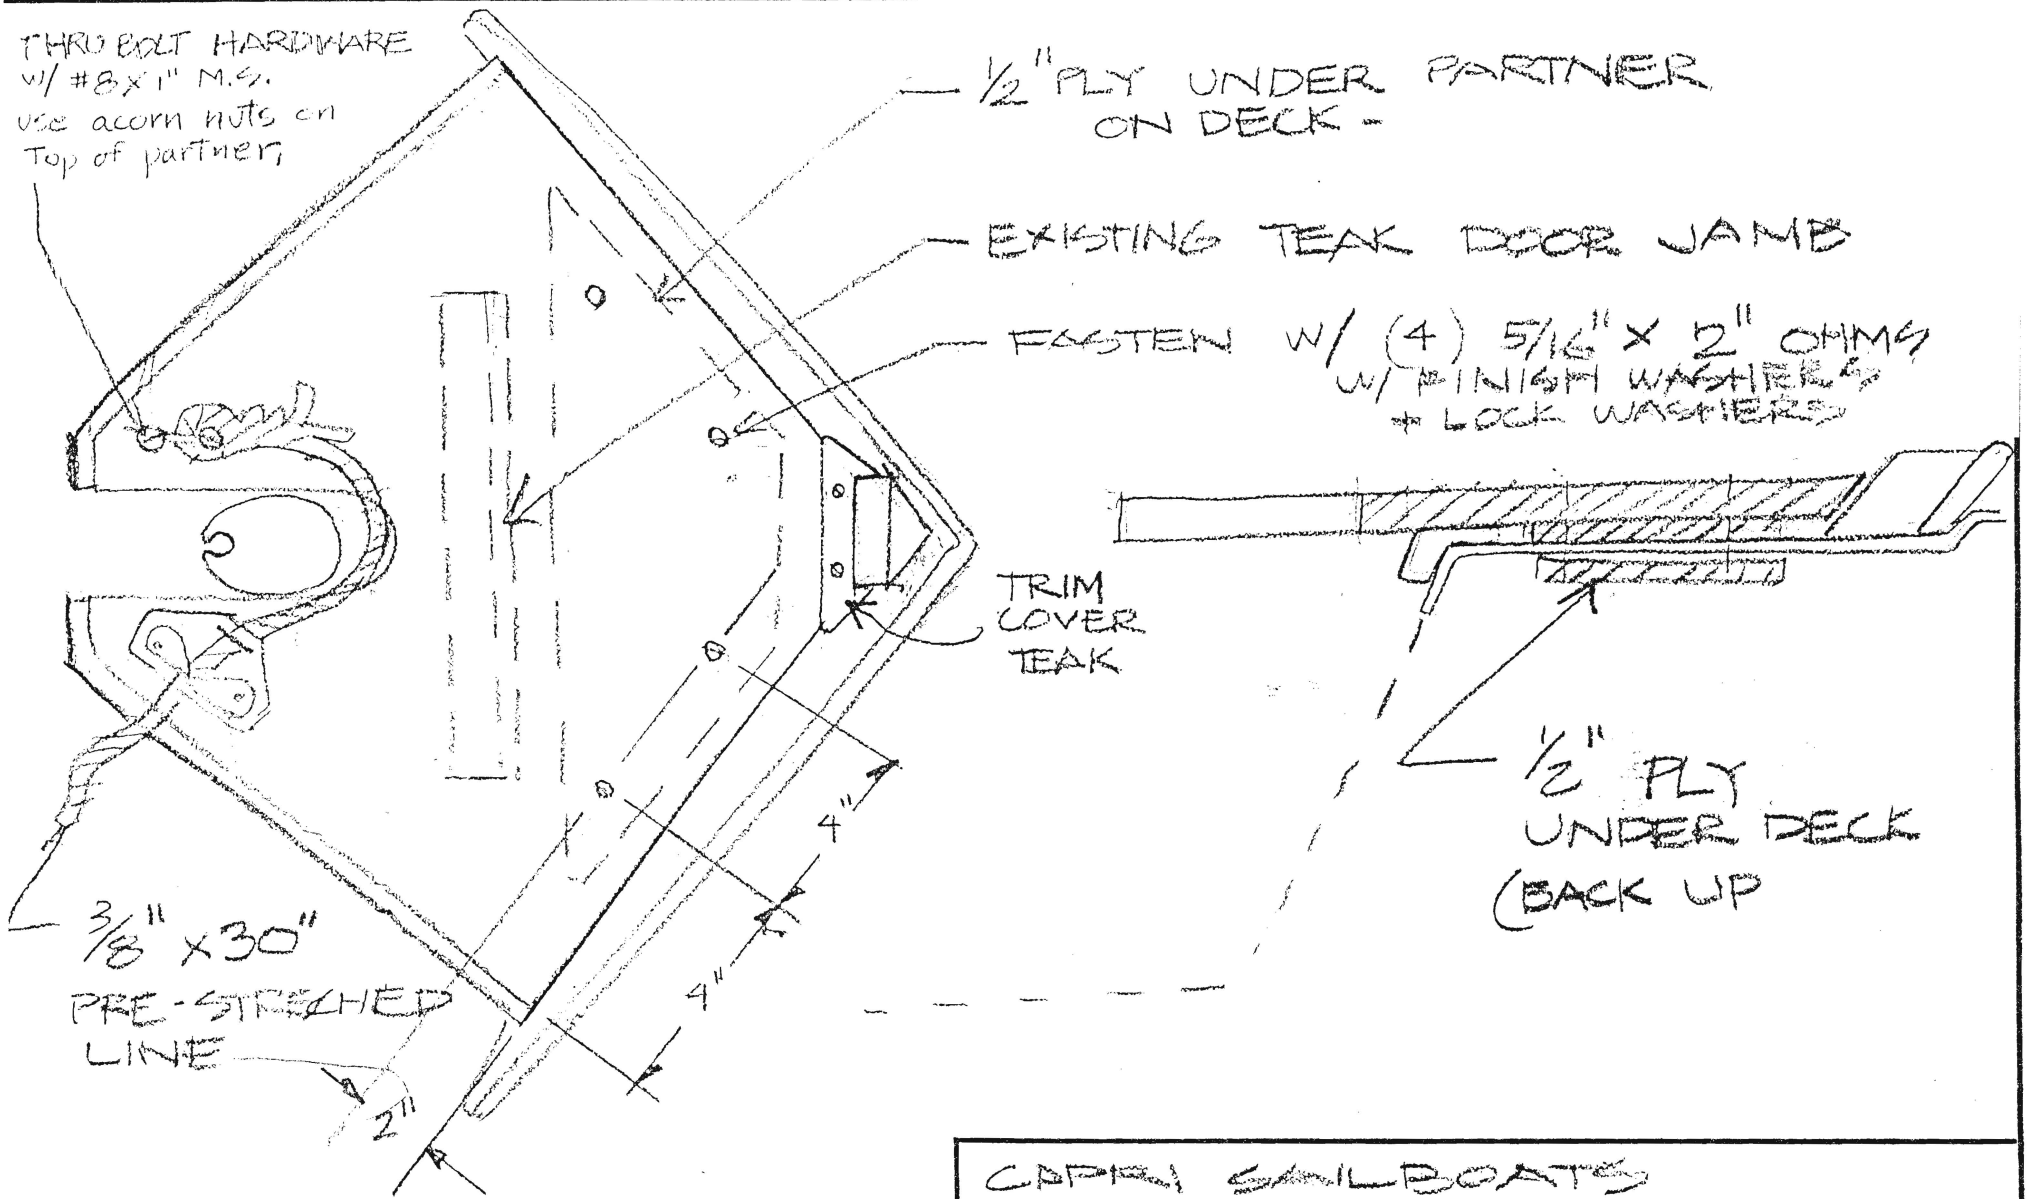 THRU BOLT HARDWARE
W/ #8 X 1" M.S.
use acorn nuts on
Top of partner,
1/2" PLY UNDER PARTNER
ON DECK -
EXISTING TEAK DOOR JAMB
FASTEN W/ (4) 5/16" X 2" OHMS
W/ FINISH WASHERS
+ LOCK WASHERS
TRIM
COVER
TEAK
1/2" PLY
UNDER DECK
(BACK UP
4"
4"
2"
3/8" X 30"
PRE-STRECHED
LINE
CAPRI SAILBOATS